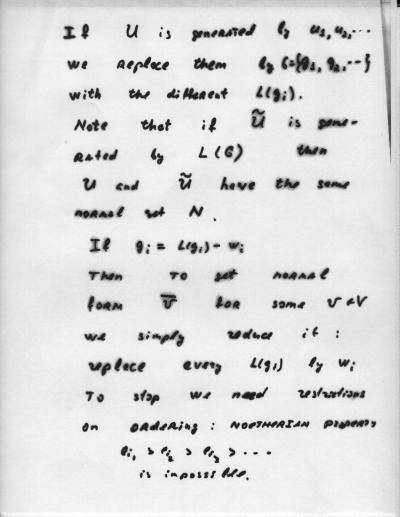 If U is generated by u₁, u₂, ...
we replace them by G={g₁, g₂, ...}
with the different L(gᵢ).
Note that if Ũ is gene-
rated by L(G) then
U and Ũ have the same
normal set N.
If gᵢ = L(gᵢ) - wᵢ
Then to get normal
form v̅ for some v ∈ V
we simply reduce it:
replace every L(gᵢ) by wᵢ
To stop we need restrictions
on ordering: NOETHERIAN property
eᵢ₁ > eᵢ₂ > eᵢ₂ > ...
is impossible.